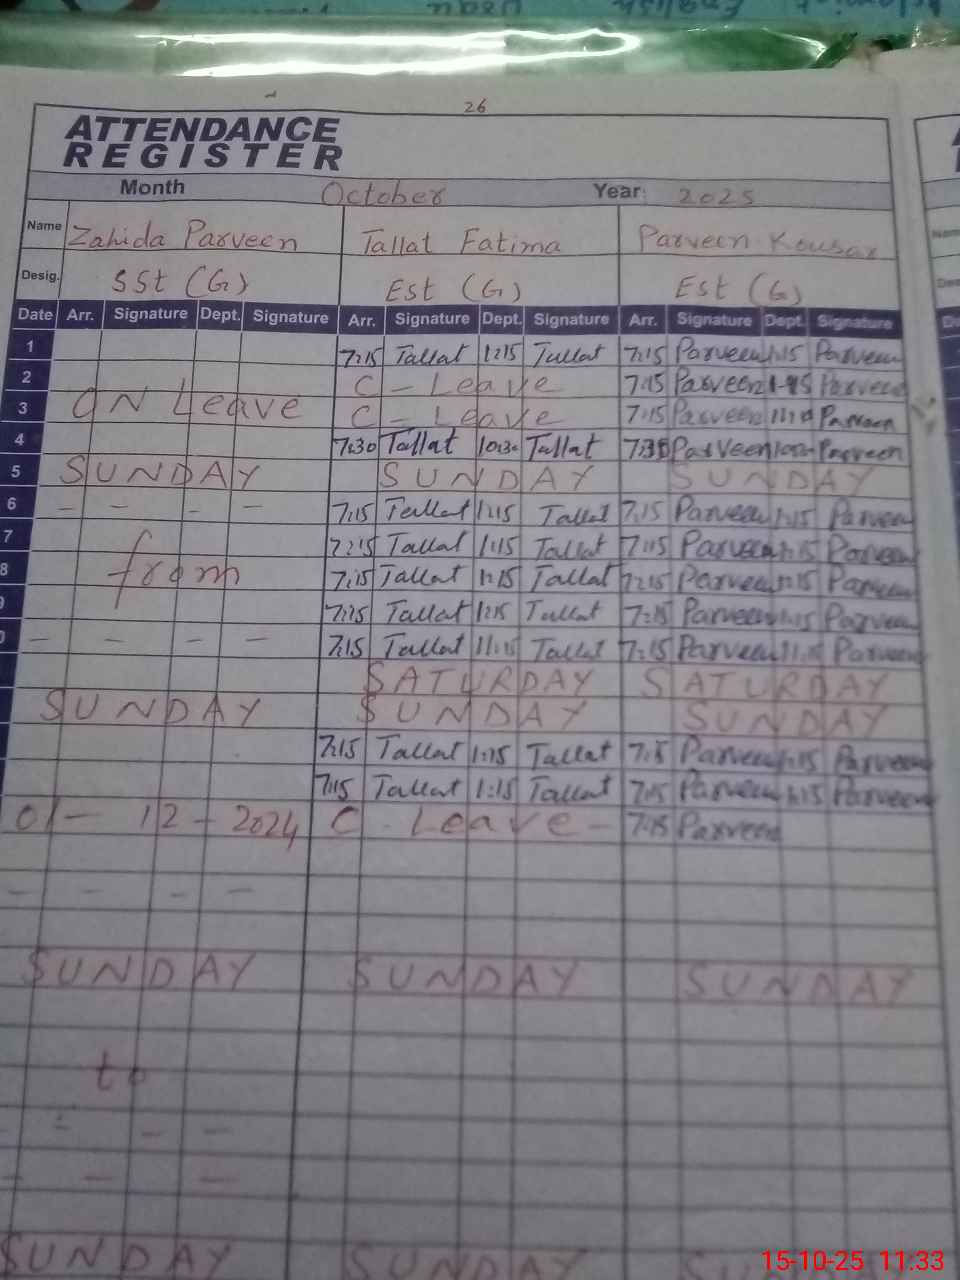 26
ATTENDANCE
REGISTER
Month October Year: 2025
Name Zahida Parveen Tallat Fatima Parveen Kousar
Desig. SSt (G) Est (G) Est (G)
Date Arr. Signature Dept. Signature Arr. Signature Dept. Signature Arr. Signature Dept. Signature
1 7:15 Tallat 1:15 Tallat 7:15 Parveen 1:15 Parveen
2 C - Leave 7:15 Parveen Parveen
3 ON Leave C - Leave 7:15 Parveen Parveen
4 7:30 Tallat 10:30 Tallat 7:30 Parveen Parveen
5 SUNDAY SUNDAY SUNDAY
6 - - - - 7:15 Tallat 1:15 Tallat 7:15 Parveen 1:15 Parveen
7 7:15 Tallat 1:15 Tallat 7:15 Parveen 1:15 Parveen
8 from 7:15 Tallat 1:15 Tallat 7:15 Parveen 1:15 Parveen
7:15 Tallat 1:15 Tallat 7:15 Parveen 1:15 Parveen
- - - - 7:15 Tallat 11:15 Tallat 7:15 Parveen Parveen
SATURDAY SATURDAY
SUNDAY SUNDAY SUNDAY
7:15 Tallat 1:15 Tallat 7:15 Parveen 1:15 Parveen
7:15 Tallat 1:15 Tallat 7:15 Parveen 1:15 Parveen
01 - 12 - 2024 C - Leave - 7:15 Parveen
- - - -
SUNDAY SUNDAY SUNDAY
to
- - -
- - -
SUNDAY SUNDAY
15-10-25 11:33